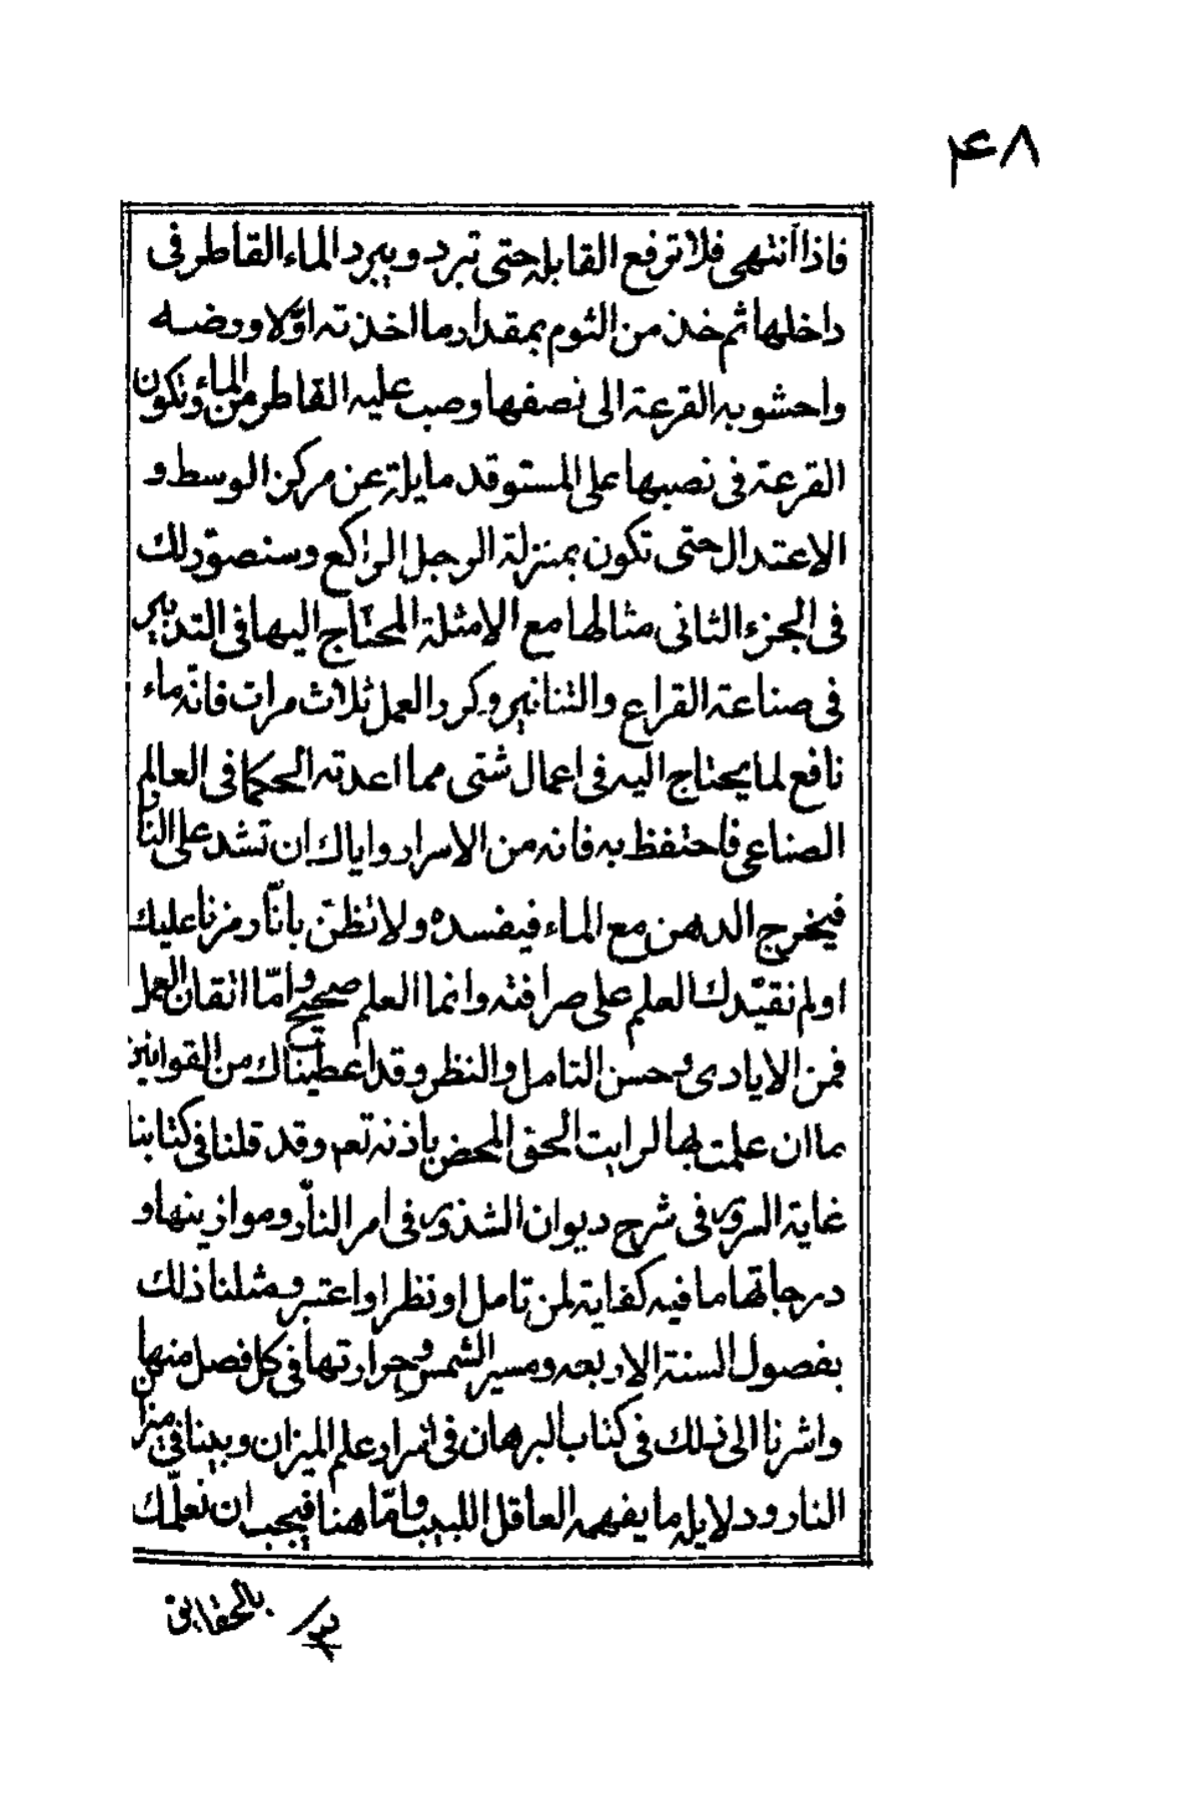 ۴۸
فاذا انتهى فلا ترفع القابله حتى تبرد ويبرد الماء القاطر فى
داخلها ثم خذ من الثوم بمقدار ما اخذته اوّلا ورضه
واحشو به القرعة الى نصفها وصب عليه القاطر من الماء وتكون
القرعة فى نصبها على المستوقد مايلة عن مركز الوسط و
الاعتدال حتى تكون بمنزلة الرجل الراكع وسنصوّر لك
فى الجزء الثانى مثالها مع الامثلة المحتاج اليها فى التدبير
فى صناعة القراع والتنانير وكرر العمل ثلاث مرات فانّه ماء
نافع لما يحتاج اليه فى اعمال شتى مما اعدته الحكما فى العالم
الصناعى فاحتفظ به فانه من الاسرار واياك ان تشد على النار
فيخرج الدهن مع الماء فيفسده ولا تظنّ بانّا رمزنا عليك
او لم نقيّد لك العلم على صرافته وانما العلم صحيح وامّا اتقان العمل
فمن الايادى وحسن التامل والنظر وقد اعطيناك من القوانين
ما ان علمت بها لرايت الحق المحض باذنه تعم وقد قلنا فى كتابنا
غاية السرور فى شرح ديوان الشذور فى امر النّار وموازينها و
درجاتها ما فيه كفاية لمن تامل او نظر او اعتبر ومثلنا ذلك
بفصول السنة الاربعه ومسير الشمس وحرارتها فى كل فصل منها
واشرنا الى ذلك فى كتاب البرهان فى اسرار علم الميزان وبينا فى ميزان
النار ودلايله ما يفهمه العاقل اللبيب وامّا هنا فيجب ان نعلّمك
بالحقايق